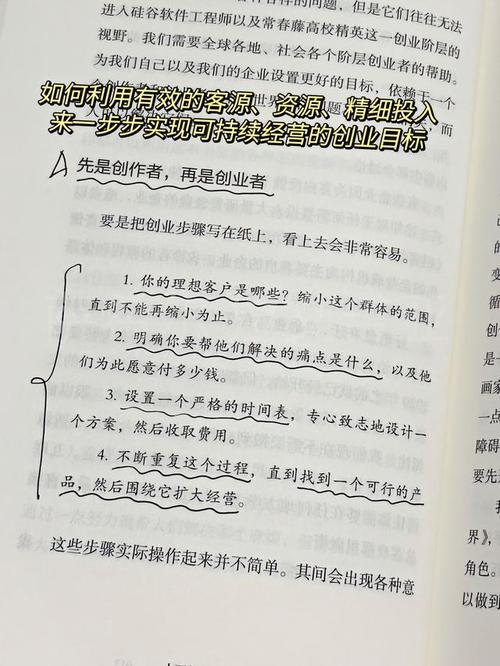 进入硅谷软件工程师以及常春藤高校精英这一创业阶层的
视野。我们需要全球各地、社会各个阶层创业者的帮助。
为我们自己以及我们的企业设置更好的目标，依赖于一个
如何利用有效的客源、资源、精细投入
来一步步实现可持续经营的创业目标
先是创作者，再是创业者
要是把创业步骤写在纸上，看上去会非常容易。
1. 你的理想客户是哪些？缩小这个群体的范围，
直到不能再缩小为止。
2. 明确你要帮他们解决的痛点是什么，以及他
们为此愿意付多少钱。
3. 设置一个严格的时间表，专心致志地设计一
个方案，然后收取费用。
4. 不断重复这个过程，直到找到一个可行的产
品，然后围绕它扩大经营。
这些步骤实际操作起来并不简单。其间会出现各种意
变
循
创作
画家
一点
障碍
要先
界》，
角色。
以做到